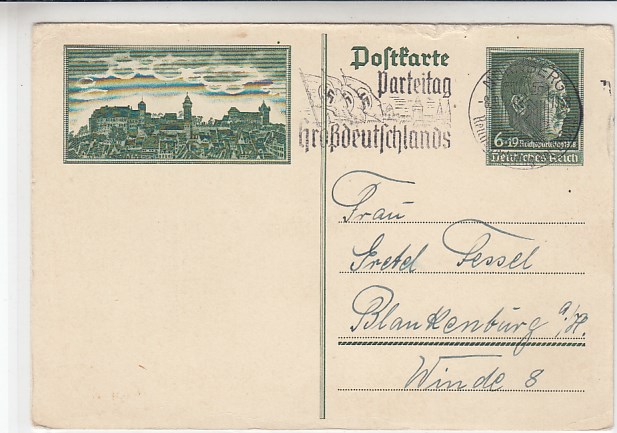 Postkarte
Parteitag
Großdeutschlands
NÜRNBERG
6+19 Reichsparteitag 1938
Deutsches Reich
Frau
Gretel Tessel
Blankenburg a/H.
Winde 8